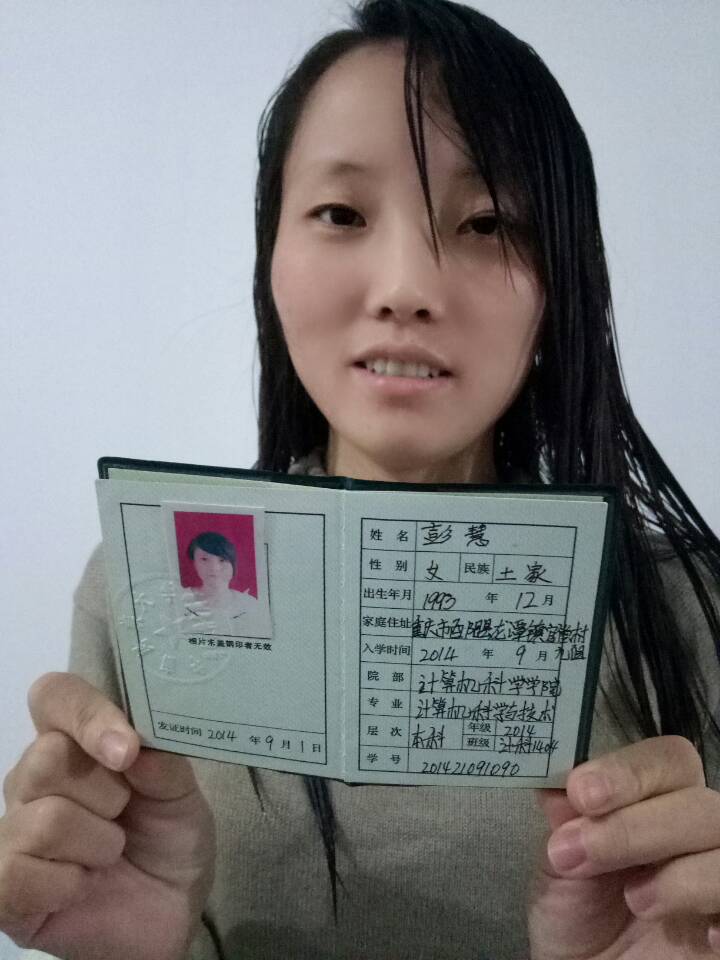 相片未盖钢印者无效
发证时间 2014 年 9 月 1 日
姓名 彭慧
性别 女 民族 土家
出生年月 1993 年 12 月
家庭住址 重庆市酉阳县龙潭镇
入学时间 2014 年 9 月
院部 计算机科学学院
专业 计算机科学与技术
层次 本科 年级 2014
班级 计科1404
学号 201421091090